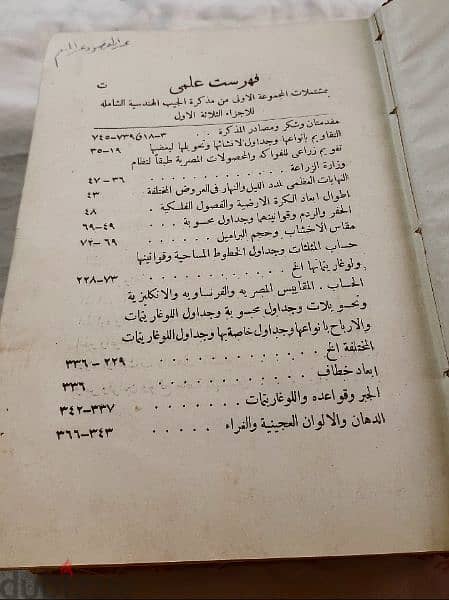 فهرست علمى
ت
بمشتملات المجموعة الاولى من مذكرة الجيب الهندسية الشامله
للاجزاء الثلاثة الاول
مقدمتان وشكر ومصادر المذكرة ٣-١٨ و٧٣٩-٧٤٥
التقاويم بانواعها وجداول لانشائها وتحويلها لبعضها ١٩-٣٥
تقويم زراعى للفواكه والمحصولات المصرية طبقاً لنظام
وزارة الزراعة ٣٦-٤٧
النهايات العظمى لمدد الليل والنهار فى العروض المختلفة ٤٣
اطوال ابعاد الكرة الارضية والفصول الفلكية ٤٨
الحفر والردم وقوانينهما وجداول محسوبة ٤٩-٦٩
مقاس الاخشاب وحجم البراميل ٦٩-٧٢
حساب المثلثات وجداول الخطوط المساحية وقوانينها
ولوغاريتماتها الخ ٧٣-٢٢٨
الحساب . المقاييس المصريه والفرنساويه والانكليزية
وتحويلات وجداول محسوبة وجداول اللوغاريتمات
والارباح بانواعها وجداول خاصة بها وجداول اللوغاريتمات
المختلفة الخ ٢٢٩-٣٣٦
ابعاد خطاف ٣٣٦
الجبر وقواعده واللوغاريتمات ٣٣٧-٣٤٢
الدهان والالوان العجينية والغراء ٣٤٣-٣٦٦